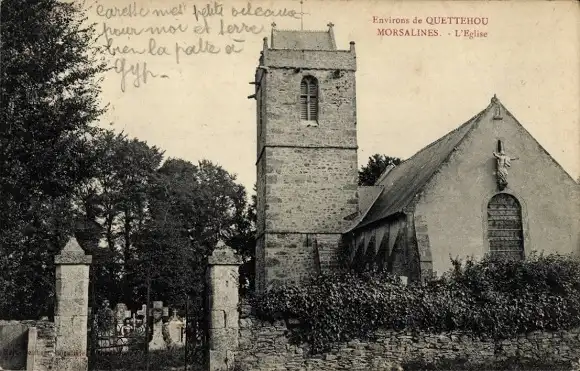 Caresse moi petite
pour moi et serre
bien la patte à
Gyp.
Environs de QUETTEHOU
MORSALINES. - L'Eglise